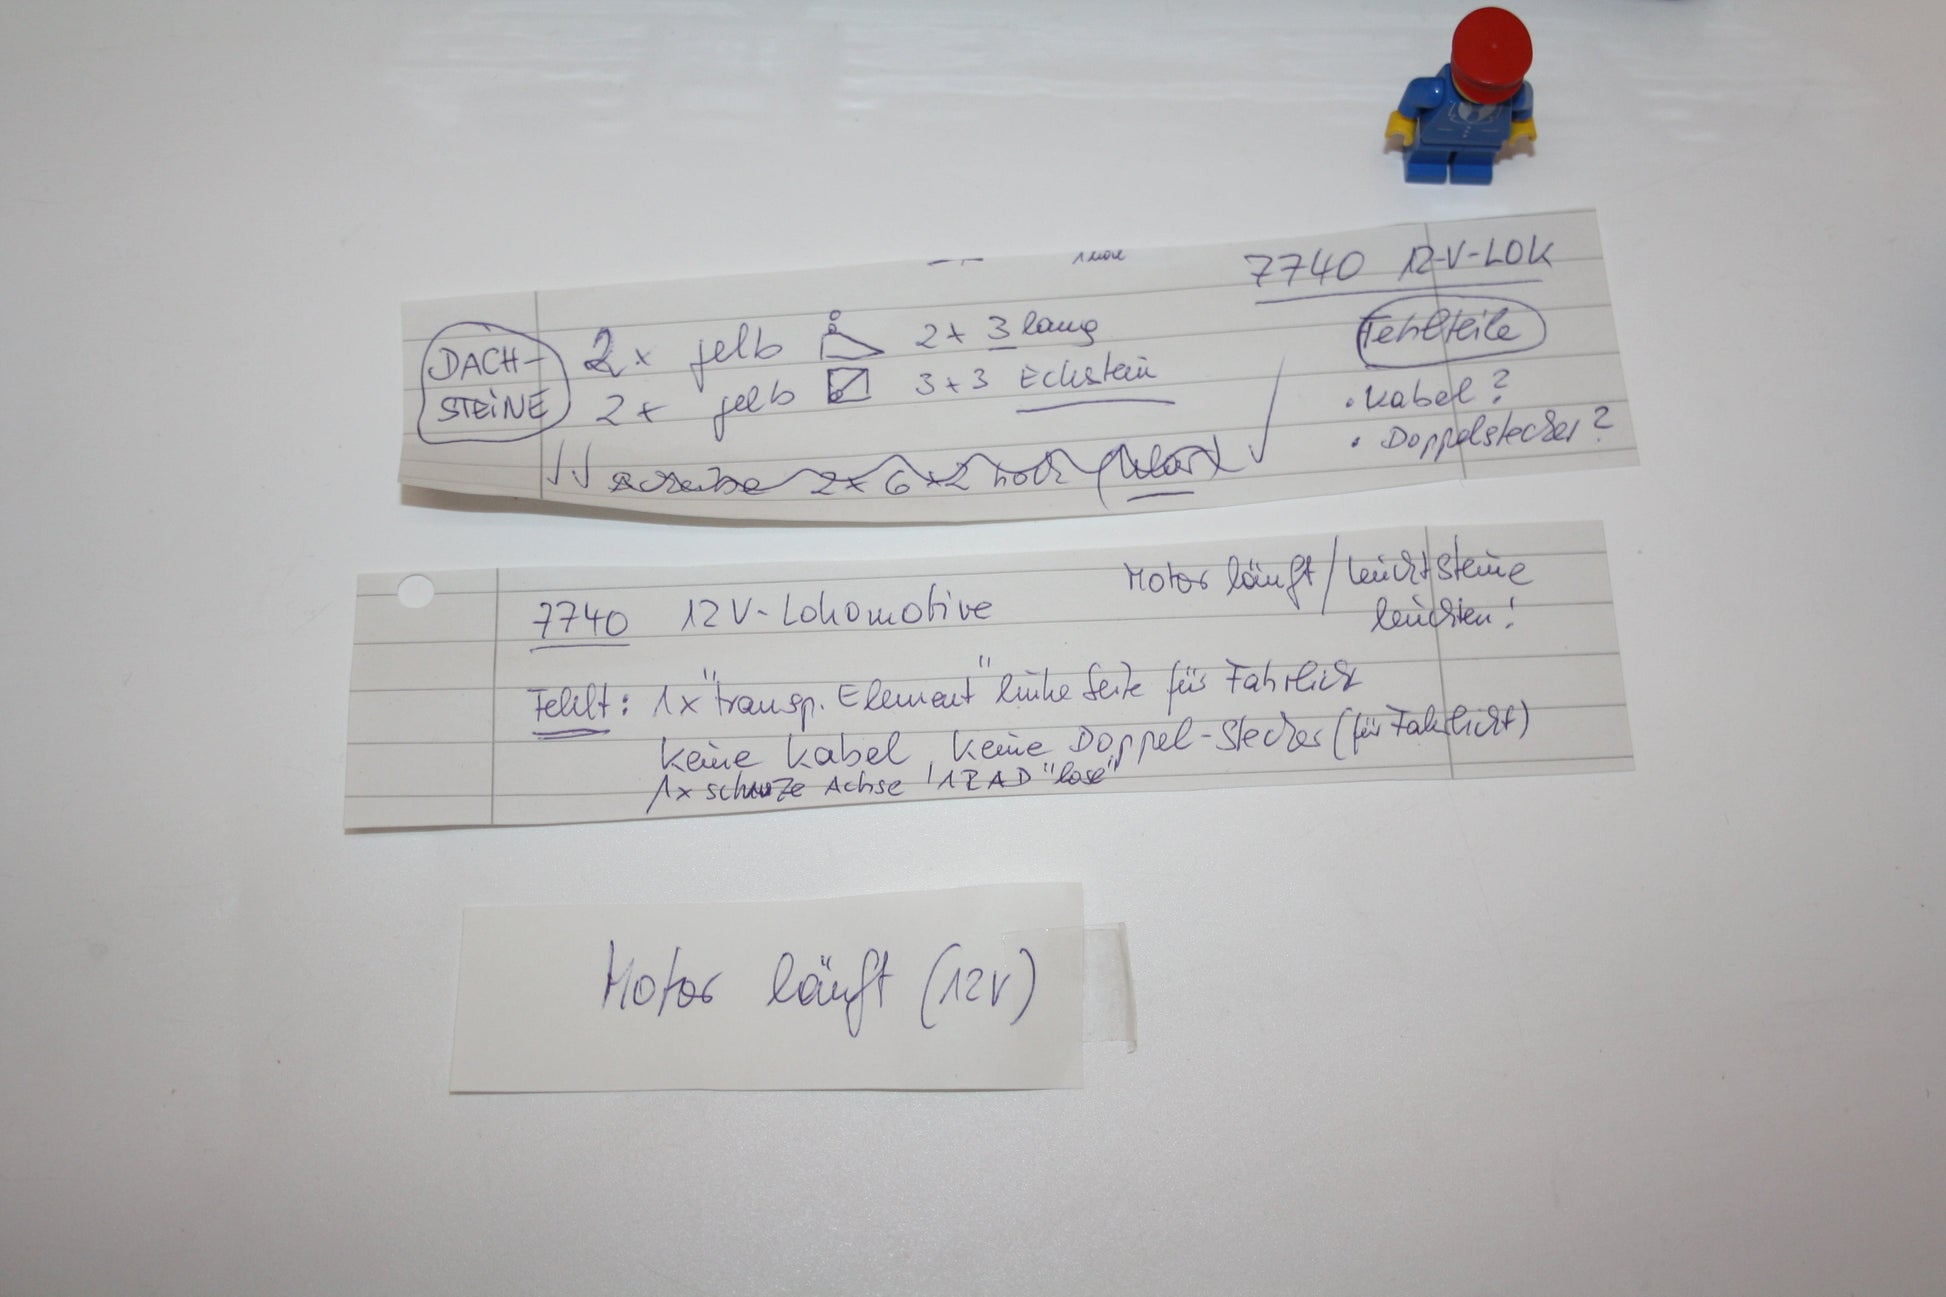 7740 12-V-LOK
DACH-
STEINE
2x gelb 2x 3 lang
2x gelb 3x3 Eckstein
Scheibe 2x6x2 hoch (klar)
Fehlteile
• Kabel?
• Doppelstecker?
7740 12V-Lokomotive
Motor läuft/Leuchtsteine
leuchten!
Fehlt: 1x "transp. Element" linke Seite für Fahrlicht
Keine Kabel, Keine Doppel-Stecker (für Fahrlicht)
1x schwarze Achse / 1 RAD "lose"
Motor läuft (12V)